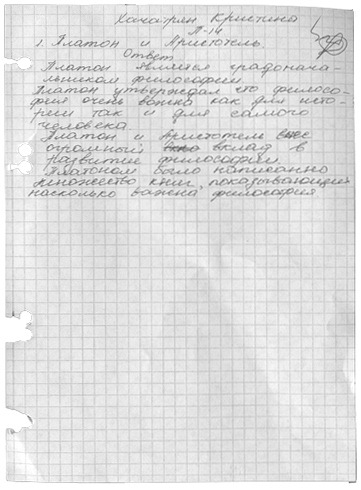 Хачатрян Кристина
П-14
1. Платон и Аристотель.
Ответ
Платон является градонача-
льником философии.
Платон утверждал что филосо-
фия очень важна как для исто-
рии так и для самого
человека
Платон и Аристотель
огромный вклад в
развитие философии.
Платоном было написанно
множество книг, показывающий
насколько важна философия